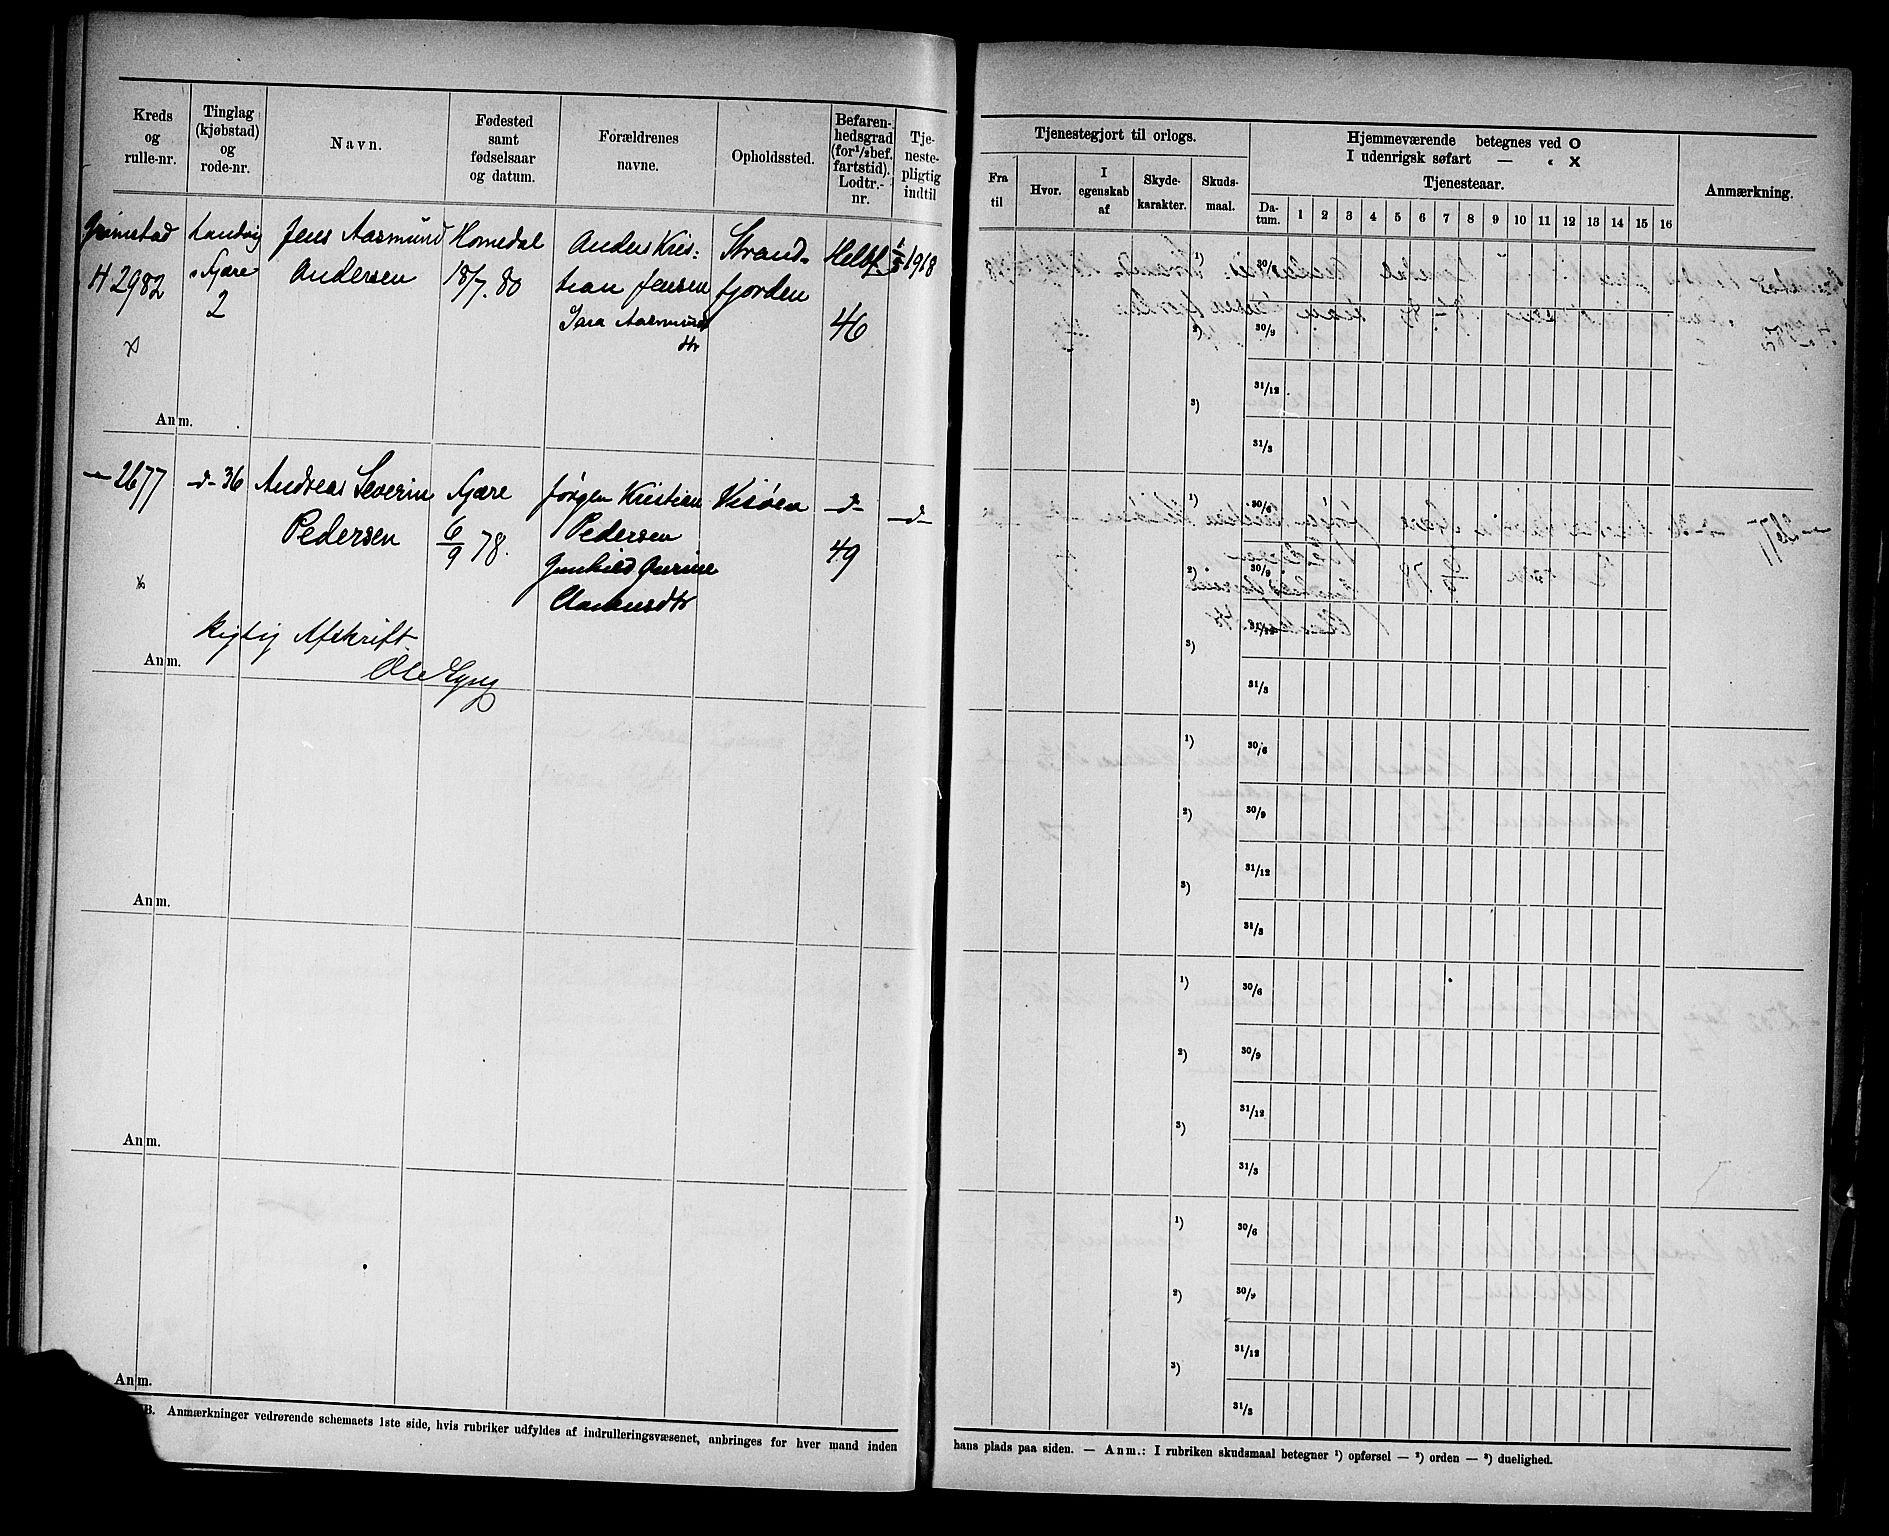 Kreds
og
rulle-nr.
Tinglag
(kjøbstad)
og
rode-nr.
Navn.
Fødested
samt
fødselsaar
og datum.
Forældrenes
navne.
Opholdssted.
Befaren-
hedsgrad
(for ½ bef.
fartstid).
Lodtr.-
nr.
Tje-
neste-
pligtig
indtil
Grimstad
H 2982
Landvig
Fjære
2
Jens Aasmund
Andersen
Homedal
18/7. 80
Anders Kris:
tian Jensen
Aasmunds
dtr
Strand-
fjorden
Helbf.
46
1/5 1918
Anm.
— 2677
-d- 36
Andreas Severin
Pedersen
Fjære
6/9 78.
Jørgen Kristian
Pedersen
Gunhild
Vesøen
-d-
49
-d-
Rigtig Afskrift
Ole
Anm.
Anm.
Anm.
Anm.
B. Anmærkninger vedrørende schemaets 1ste side, hvis rubriker udfyldes af indrulleringsvæsenet, anbringes for hver mand inden
Tjenestegjort til orlogs.
Fra
til
Hvor.
I
egenskab
af
Skyde-
karakter.
Skuds-
maal.
Hjemmeværende betegnes ved O
I udenrigsk søfart — « X
Tjenesteaar.
Da-
tum. 1 2 3 4 5 6 7 8 9 10 11 12 13 14 15 16
Anmærkning.
¹) 30/6
²) 30/9
31/12
³)
31/3
¹) 30/6
²) 30/9
31/12
³)
31/3
¹) 30/6
²) 30/9
31/12
³)
31/3
¹) 30/6
²) 30/9
31/12
³)
31/3
¹) 30/6
²) 30/9
31/12
³)
31/3
hans plads paa siden. — Anm.: I rubriken skudsmaal betegner ¹) opførsel — ²) orden — ³) duelighed.